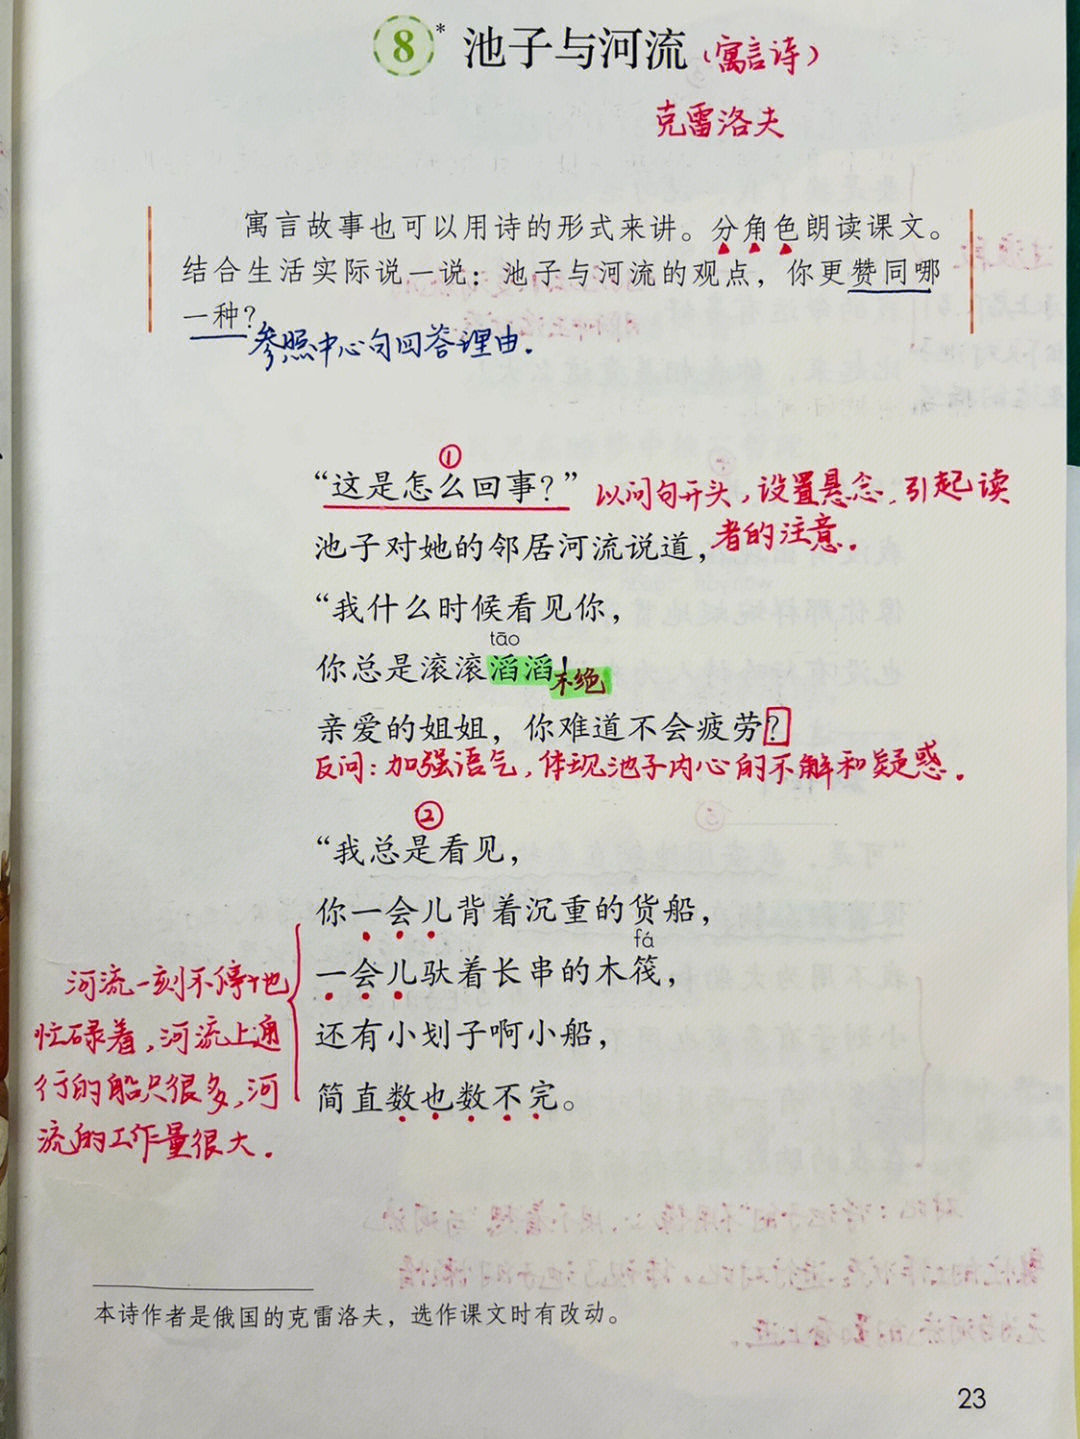 8* 池子与河流（寓言诗）
克雷洛夫
寓言故事也可以用诗的形式来讲。分角色朗读课文。
结合生活实际说一说：池子与河流的观点，你更赞同哪
一种？
参照中心句回答理由.
①
“这是怎么回事？” 以问句开头,设置悬念,引起读
池子对她的邻居河流说道， 者的注意.
“我什么时候看见你，
tāo
你总是滚滚滔滔！ 不绝
亲爱的姐姐，你难道不会疲劳？
反问：加强语气，体现池子内心的不解和疑惑.
②
“我总是看见，
你一会儿背着沉重的货船，
fá
一会儿驮着长串的木筏，
还有小划子啊小船，
简直数也数不完。
河流一刻不停地
忙碌着,河流上通
行的船只很多,河
流的工作量很大.
本诗作者是俄国的克雷洛夫，选作课文时有改动。
23